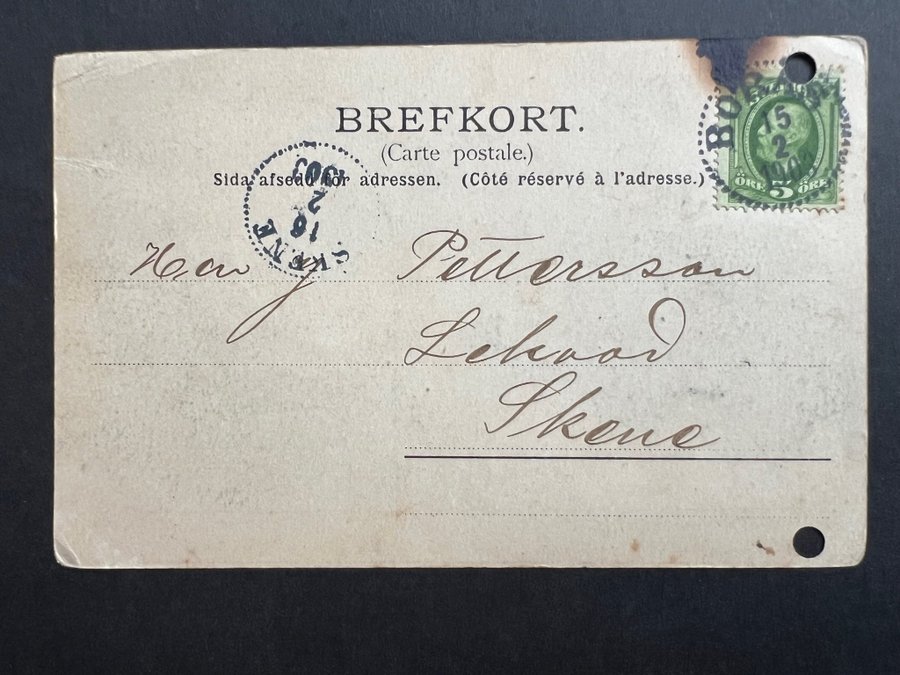 BREFKORT.
(Carte postale.)
Sida afsedd för adressen. (Côté réservé à l'adresse.)
BORÅS
15
2
1903
5 ÖRE 5 ÖRE
SKENE
16
2
1903
Herr J Pettersson
Lekvad
Skene